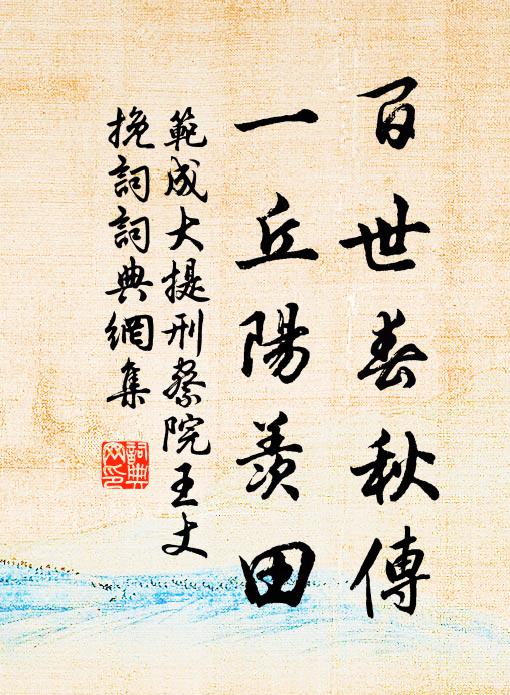 百世春秋傳
一丘陽羨田
範成大提刑察院王丈
挽詞詞典網集
詞典
网印